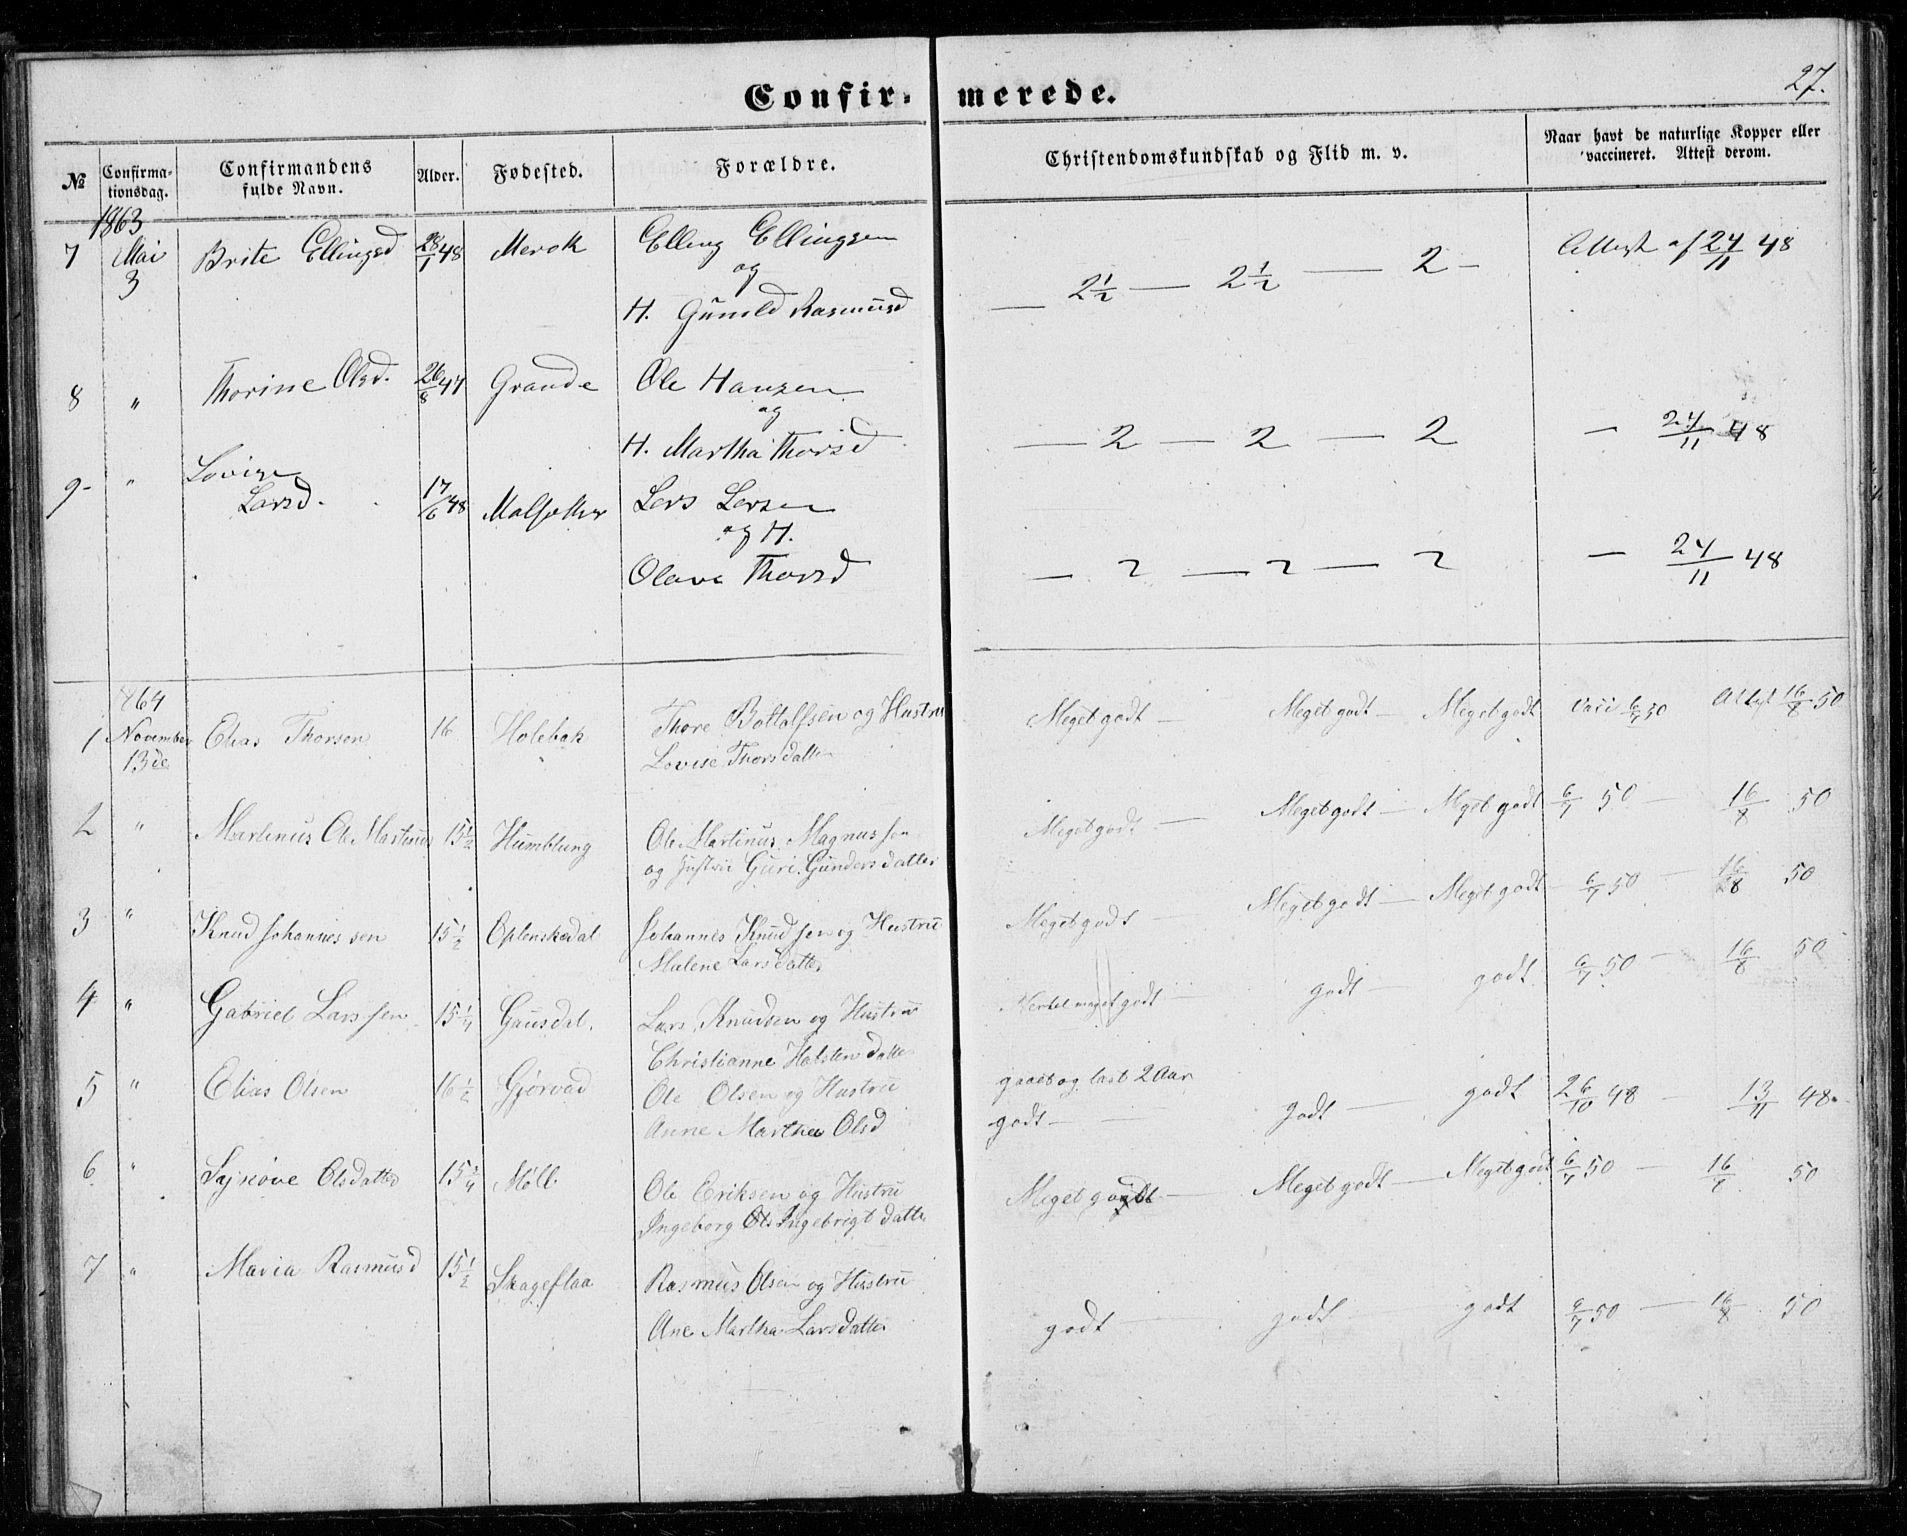 Confir- merede.
27.
№
Confirma-
tionsdag.
Confirmandens
fulde Navn.
Alder.
Fødested.
Forældre.
Christendomskundskab og Flid m. v.
Naar havt de naturlige Kopper eller
vaccineret. Attest derom.
1863
7 Mai Brite Ellingsd 28/1 48 Merok Elling Ellingsen
3 og
H. Gunild Rasmusd
— 2½ — 2½ — 2 — Attest af 24/11 48
8 " Thorine Olsd. 26/8 47 Grande Ole Hansen
og
H. Martha Thorsd
— 2 — 2 — 2 — 24/11 48
9- " Lovise
Larsd. 17/6 48 Lars Larsen
og H.
Olave Thorsd
— 2 — 2 — 2 — 24/11 48
864
1 November Elias Thorsen 16 Holebak Thore Bottolfsen og Hustru
13de Lovise Thorsdatter
Meget godt — Meget godt — Meget godt Vacc 6/7 50 Attest 16/8 50
2 " Martinus Ol. Martinus 15½ Humblung Ole Martinus Magnussen
og Hustru Guri Gundersdatter
Meget godt — Meget godt — Meget godt 6/7 50 — 16/8 50
3 " Knud Johannessen 15½ Oplenskedal Johannes Knudsen og Hustru
Malene Larsdatter
Meget godt — Meget godt — Meget godt — 6/7 50 — 16/8 50
4 " Gabriel Larssen 15¼ Gausdal. Lars Knudsen og Hustru
Christianne Halstensdatter
meget godt — godt — godt 6/7 50 — 16/8 50
5 " Elias Olsen 16½ Gjørvad Ole Olsen og Hustru
Anne Marthea Olsd
gaaet og læst 2 Aar
godt — godt — godt 26/10 48 — 13/11 48
6 " Olsdatter 15¾ Møll. Ole Eriksen og Hustru
Ingeborg Ingebrigtdatter
Meget godt — Meget godt — Meget godt 6/7 50 — 16/8 50
7 " Maria Rasmusd 15½ Skageflaa Rasmus Olsen og Hustru
Ane Martha Larsdatter
godt — godt — godt 6/7 50 — 16/8 50